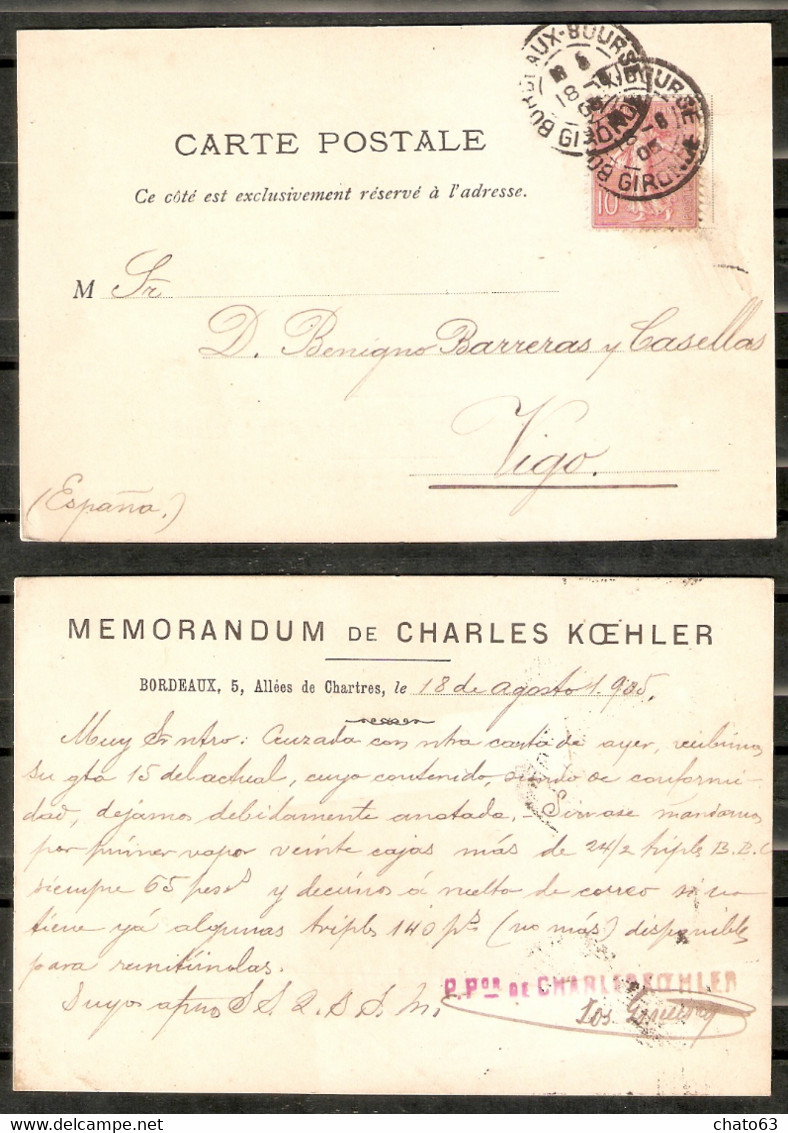 CARTE POSTALE
Ce côté est exclusivement réservé à l'adresse.
BORDEAUX-BOURSE
18
GIRONDE
BOURSE
GIRONDE
10
M Sr
D. Benigno Barreras y Casellas
Vigo.
(España.)
MEMORANDUM DE CHARLES KŒHLER
BORDEAUX, 5, Allées de Chartres, le 18 de agosto 1.905.
Muy Sr ntro: Cruzada con ntra carta de ayer, recibimos
su gta 15 del actual, cuyo contenido, siendo de conformi-
dad, dejamos debidamente anotada. Sirvase mandarnos
por primer vapor veinte cajas más de 24/2 triples B.B.C
siempre 65 pesos y decirnos á vuelta de correo si no
tiene yá algunas triples 140 ps (no más) disponibles
para remitírnolas.
Suyos afmos S S Q. B S M.
P. Por DE CHARLES KŒHLER
chato63